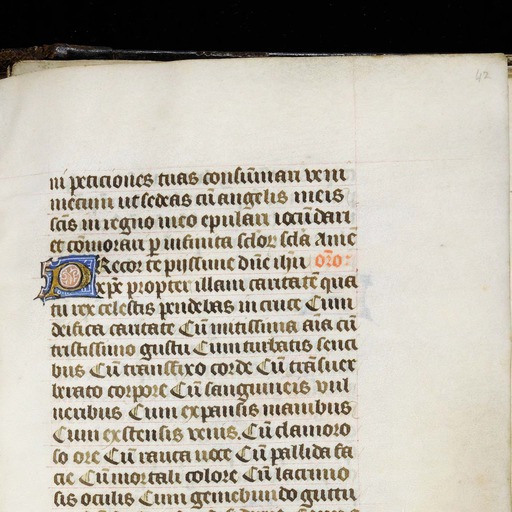 42
ni peticiones tuas consūmari veni
mecum ut sedeas cū angelis meis
sc̄is in regno meo epulari iocūdari
et cōmorari p infinita sclor̄ scla Ame
Precor te pijssime dn̄e ihū or̄o:
xp̄e propter illam caritatē qua
tu rex celestis pendebas in cruce Cum
deifica caritate Cū mitissima aīa cū
tristissimo gustu Cum turbatis sensi
bus Cū transfixo corde Cū trāsver
berato corpore Cū sanguineis vul
neribus Cum expansis manibus
Cum exstensis venis. Cū clamoro
so ore Cū rauca voce Cū pallida fa
cie Cū mortali colore Cū lacrimo
sis oculis Cum gemebundo guttu